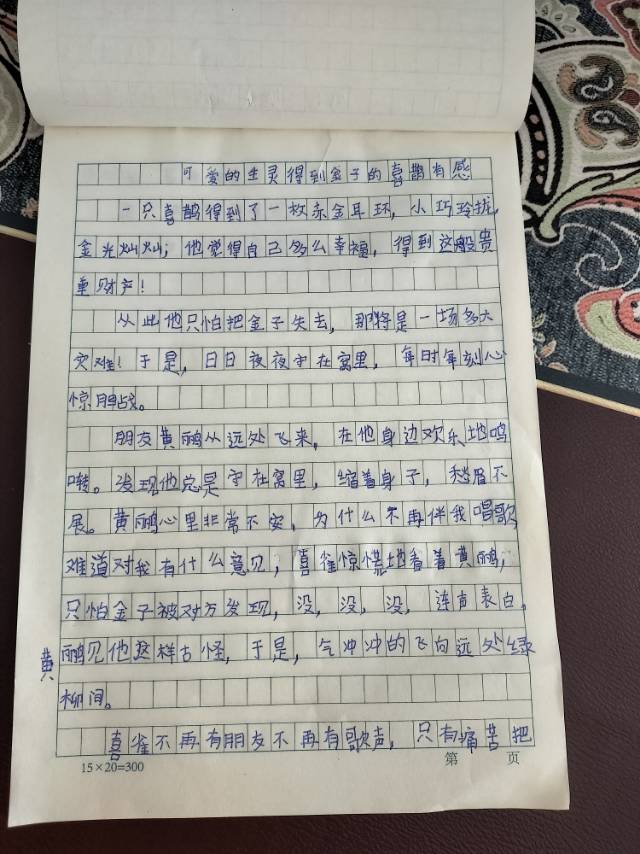 可爱的生灵得到金子的喜鹊有感
一只喜鹊得到了一枚赤金耳环，小巧玲拢，
金光灿灿；他觉得自己多么幸福，得到这般贵
重财产！
从此他只怕把金子失去，那将是一场多大
灾难！于是，日日夜夜守在窝里，每时每刻心
惊胆战。
朋友黄鹂从远处飞来，在他身边欢乐地鸣
啭。发现他总是守在窝里，缩着身子，愁眉不
展。黄鹂心里非常不安，为什么不再伴我唱歌
难道对我有什么意见，喜雀惊慌地看着黄鹂，
只怕金子被对方发现，没，没，没，连声表白。
黄鹂见他这样古怪，于是，气冲冲的飞向远处绿
柳间。
喜雀不再有朋友不再有歌声，只有痛苦把
15×20=300 第 页